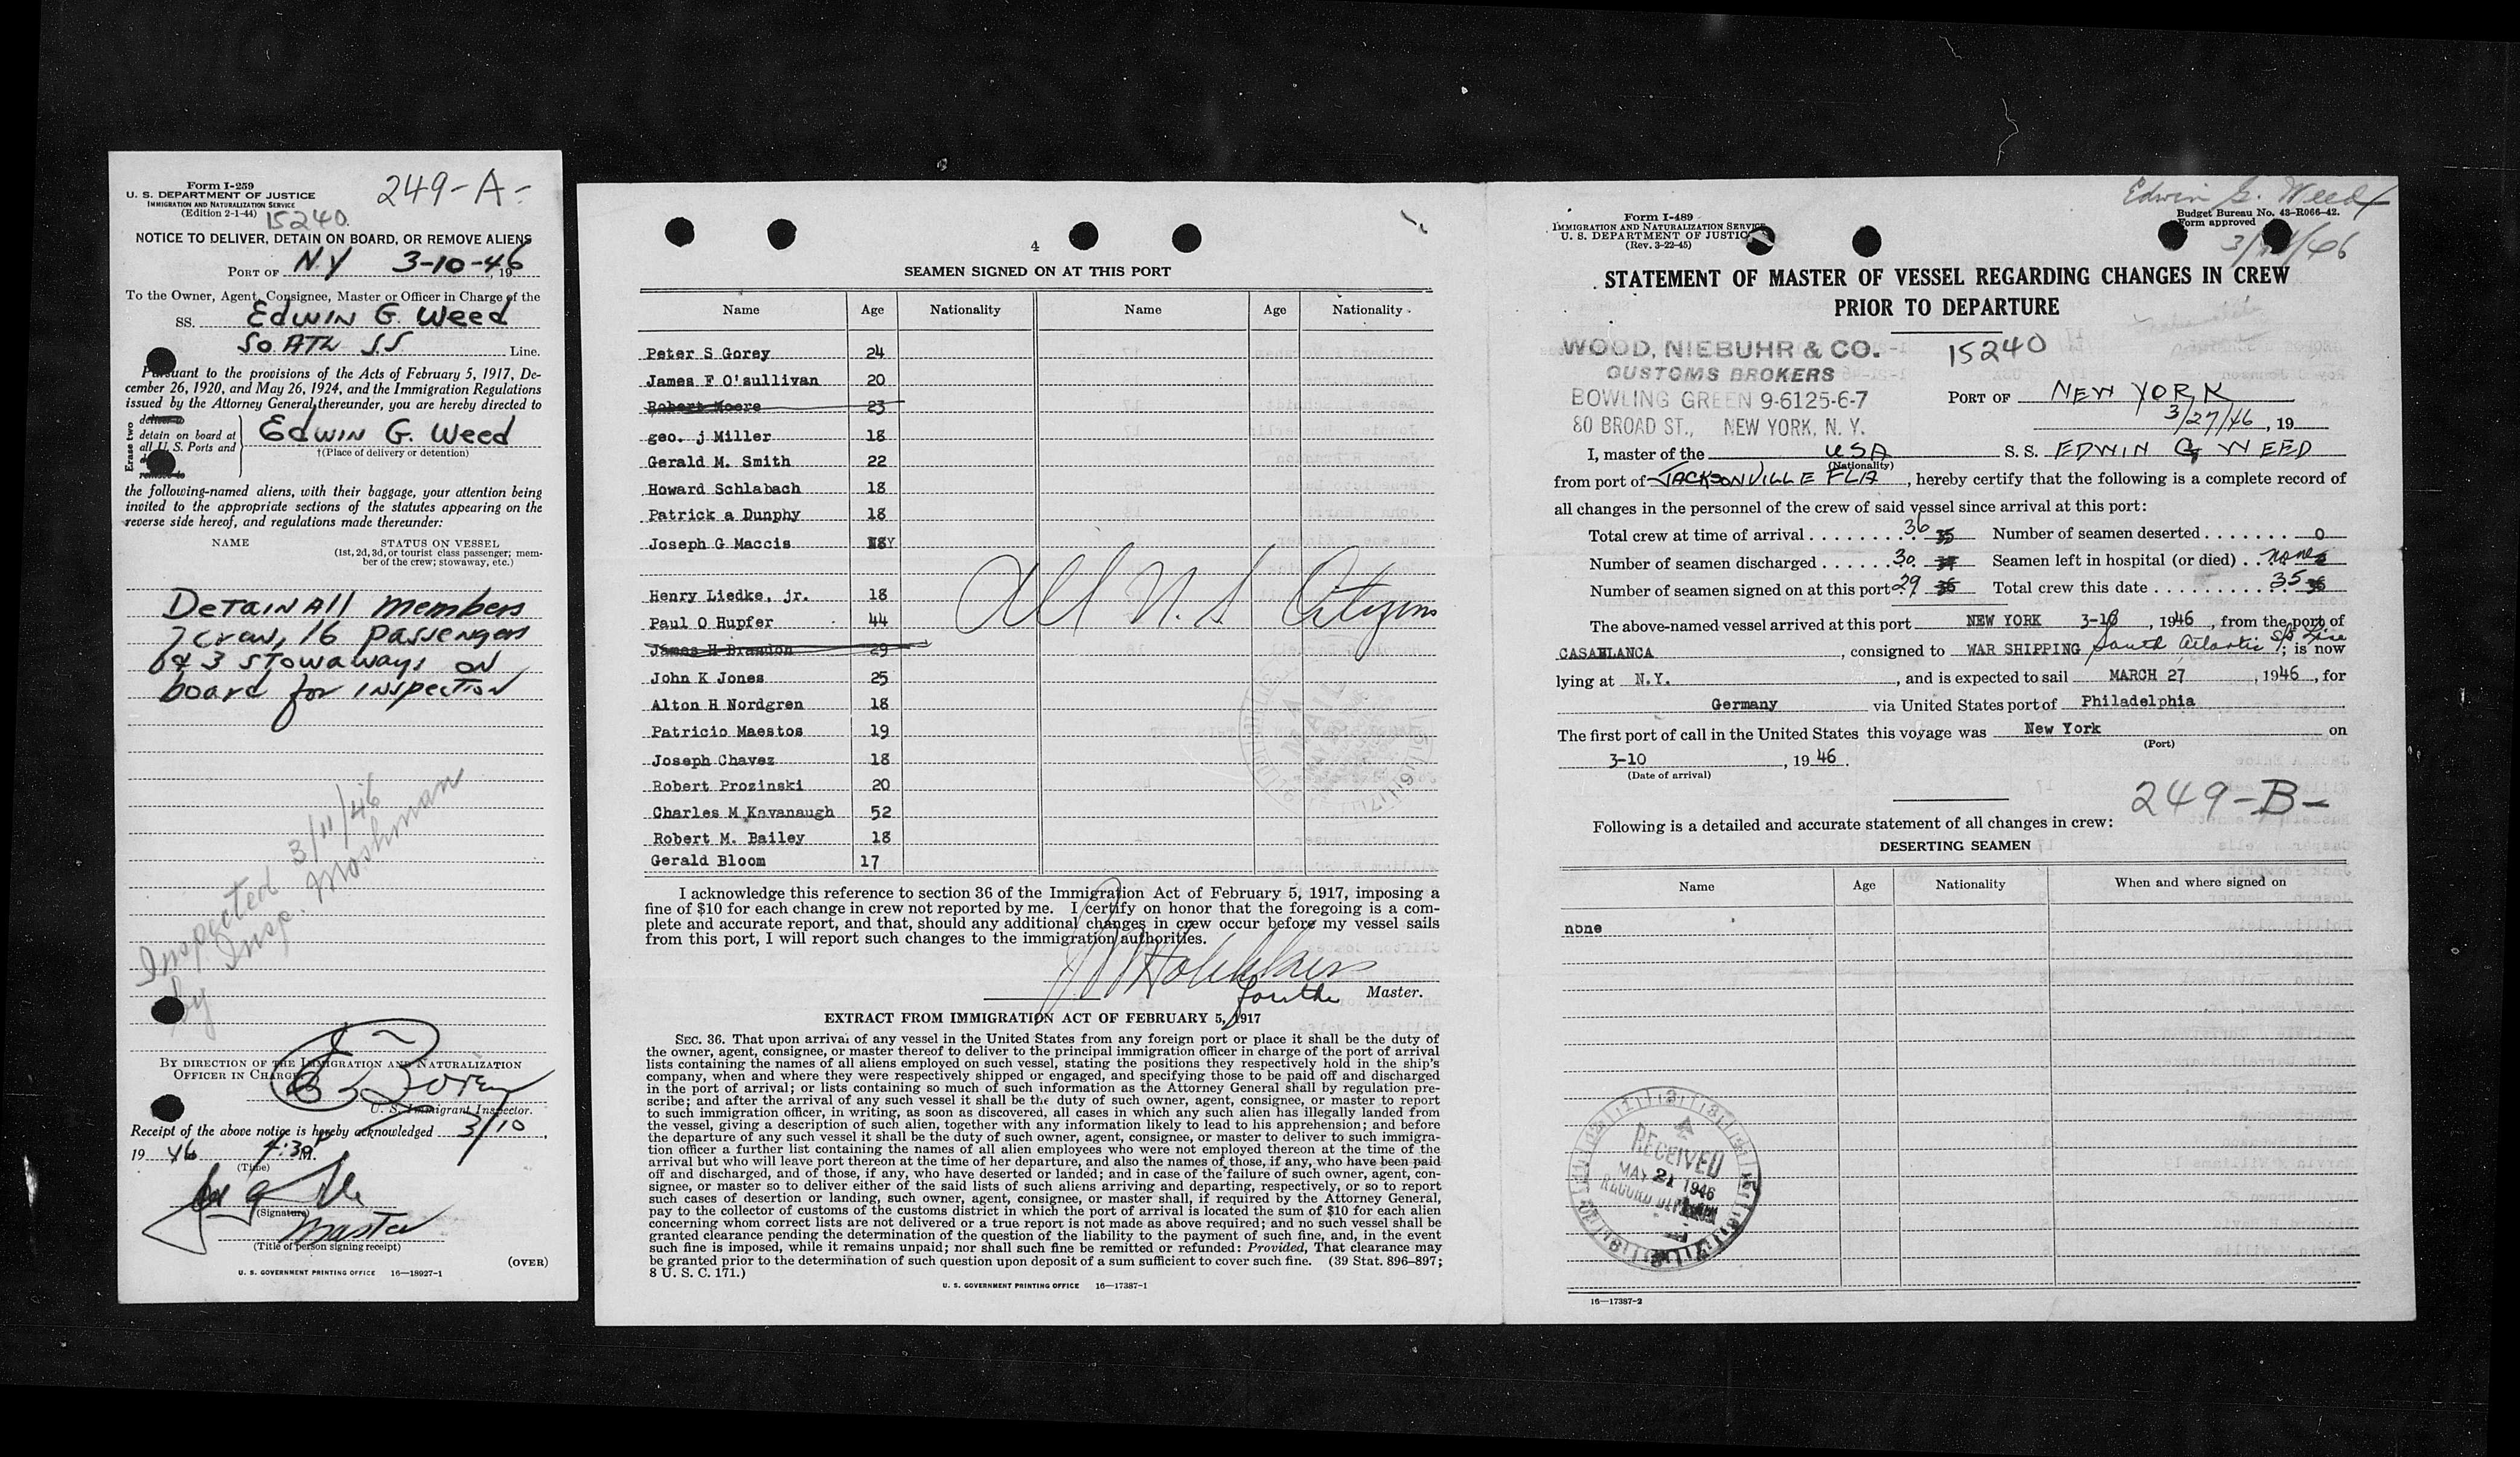 Form I-259
U. S. DEPARTMENT OF JUSTICE
IMMIGRATION AND NATURALIZATION SERVICE
(Edition 2-1-44)
249-A-
15240
NOTICE TO DELIVER, DETAIN ON BOARD, OR REMOVE ALIENS
PORT OF N.Y 3-10-46, 19
To the Owner, Agent, Consignee, Master or Officer in Charge of the
SS. Edwin G. Weed
So. ATL SS Line.
Pursuant to the provisions of the Acts of February 5, 1917, De-
cember 26, 1920, and May 26, 1924, and the Immigration Regulations
issued by the Attorney General thereunder, you are hereby directed to
Erase two
deliver to
detain on board at
all U. S. Ports and
remove to
Edwin G. Weed
†(Place of delivery or detention)
the following-named aliens, with their baggage, your attention being
invited to the appropriate sections of the statutes appearing on the
reverse side hereof, and regulations made thereunder:
NAME STATUS ON VESSEL
(1st, 2d, 3d, or tourist class passenger; mem-
ber of the crew; stowaway, etc.)
Detain All members
of crew, 16 passengers
& 3 stowaways on
board for inspection
Inspected 3/11/46
by Insp. Moshman
BY DIRECTION OF THE IMMIGRATION AND NATURALIZATION
OFFICER IN CHARGE
U. S. Immigrant Inspector.
Receipt of the above notice is hereby acknowledged 3/10,
19 46 M.
(Time)
(Signature)
Master
(Title of person signing receipt)
(OVER)
U. S. GOVERNMENT PRINTING OFFICE 16—18927-1
4
SEAMEN SIGNED ON AT THIS PORT
Name Age Nationality Name Age Nationality
Peter S Gorey 24
James F O'sullivan 20
Robert Moore 23
geo. j Miller 18
Gerald M. Smith 22
Howard Schlabach 18
Patrick a Dunphy 18
Joseph G Maccis
Henry Liedke, jr. 18
Paul O Hupfer 44
All U. S Citizens
James H Brandon 29
John K Jones 25
Alton H Nordgren 18
Patricio Maestos 19
Joseph Chavez 18
Robert Prozinski 20
Charles M Kavanaugh 52
Robert M. Bailey 18
Gerald Bloom 17
I acknowledge this reference to section 36 of the Immigration Act of February 5, 1917, imposing a
fine of $10 for each change in crew not reported by me. I certify on honor that the foregoing is a com-
plete and accurate report, and that, should any additional changes in crew occur before my vessel sails
from this port, I will report such changes to the immigration authorities.
for the Master.
EXTRACT FROM IMMIGRATION ACT OF FEBRUARY 5, 1917
SEC. 36. That upon arrival of any vessel in the United States from any foreign port or place it shall be the duty of
the owner, agent, consignee, or master thereof to deliver to the principal immigration officer in charge of the port of arrival
lists containing the names of all aliens employed on such vessel, stating the positions they respectively hold in the ship's
company, when and where they were respectively shipped or engaged, and specifying those to be paid off and discharged
in the port of arrival; or lists containing so much of such information as the Attorney General shall by regulation pre-
scribe; and after the arrival of any such vessel it shall be the duty of such owner, agent, consignee, or master to report
to such immigration officer, in writing, as soon as discovered, all cases in which any such alien has illegally landed from
the vessel, giving a description of such alien, together with any information likely to lead to his apprehension; and before
the departure of any such vessel it shall be the duty of such owner, agent, consignee, or master to deliver to such immigra-
tion officer a further list containing the names of all alien employees who were not employed thereon at the time of the
arrival but who will leave port thereon at the time of her departure, and also the names of those, if any, who have been paid
off and discharged, and of those, if any, who have deserted or landed; and in case of the failure of such owner, agent, con-
signee, or master so to deliver either of the said lists of such aliens arriving and departing, respectively, or so to report
such cases of desertion or landing, such owner, agent, consignee, or master shall, if required by the Attorney General,
pay to the collector of customs of the customs district in which the port of arrival is located the sum of $10 for each alien
concerning whom correct lists are not delivered or a true report is not made as above required; and no such vessel shall be
granted clearance pending the determination of the question of the liability to the payment of such fine, and, in the event
such fine is imposed, while it remains unpaid; nor shall such fine be remitted or refunded: Provided, That clearance may
be granted prior to the determination of such question upon deposit of a sum sufficient to cover such fine. (39 Stat. 896–897;
8 U. S. C. 171.)
U. S. GOVERNMENT PRINTING OFFICE 16—17387-1
Edwin G. Weed
Form I-489
IMMIGRATION AND NATURALIZATION SERVICE
U. S. DEPARTMENT OF JUSTICE
(Rev. 3-22-45)
Budget Bureau No. 43-R066-42.
Form approved
STATEMENT OF MASTER OF VESSEL REGARDING CHANGES IN CREW
PRIOR TO DEPARTURE
WOOD, NIEBUHR & CO.
CUSTOMS BROKERS
BOWLING GREEN 9-6125-6-7
80 BROAD ST., NEW YORK, N. Y.
15240
PORT OF NEW YORK
3/27/46, 19
I, master of the USA S. S. EDWIN G WEED
(Nationality)
from port of JACKSONVILLE FLA, hereby certify that the following is a complete record of
all changes in the personnel of the crew of said vessel since arrival at this port:
Total crew at time of arrival 36 35 Number of seamen deserted 0
Number of seamen discharged 30 Seamen left in hospital (or died) none
Number of seamen signed on at this port 29 36 Total crew this date 35 36
The above-named vessel arrived at this port NEW YORK 3-10, 1946, from the port of
CASABLANCA, consigned to WAR SHIPPING South Atlantic SS Line; is now
lying at N.Y., and is expected to sail MARCH 27, 1946, for
Germany via United States port of Philadelphia
The first port of call in the United States this voyage was New York on
(Port)
3-10, 19 46.
(Date of arrival)
249-B-
Following is a detailed and accurate statement of all changes in crew:
DESERTING SEAMEN
Name Age Nationality When and where signed on
none
RECEIVED
MAY 21 1946
16—17387-2